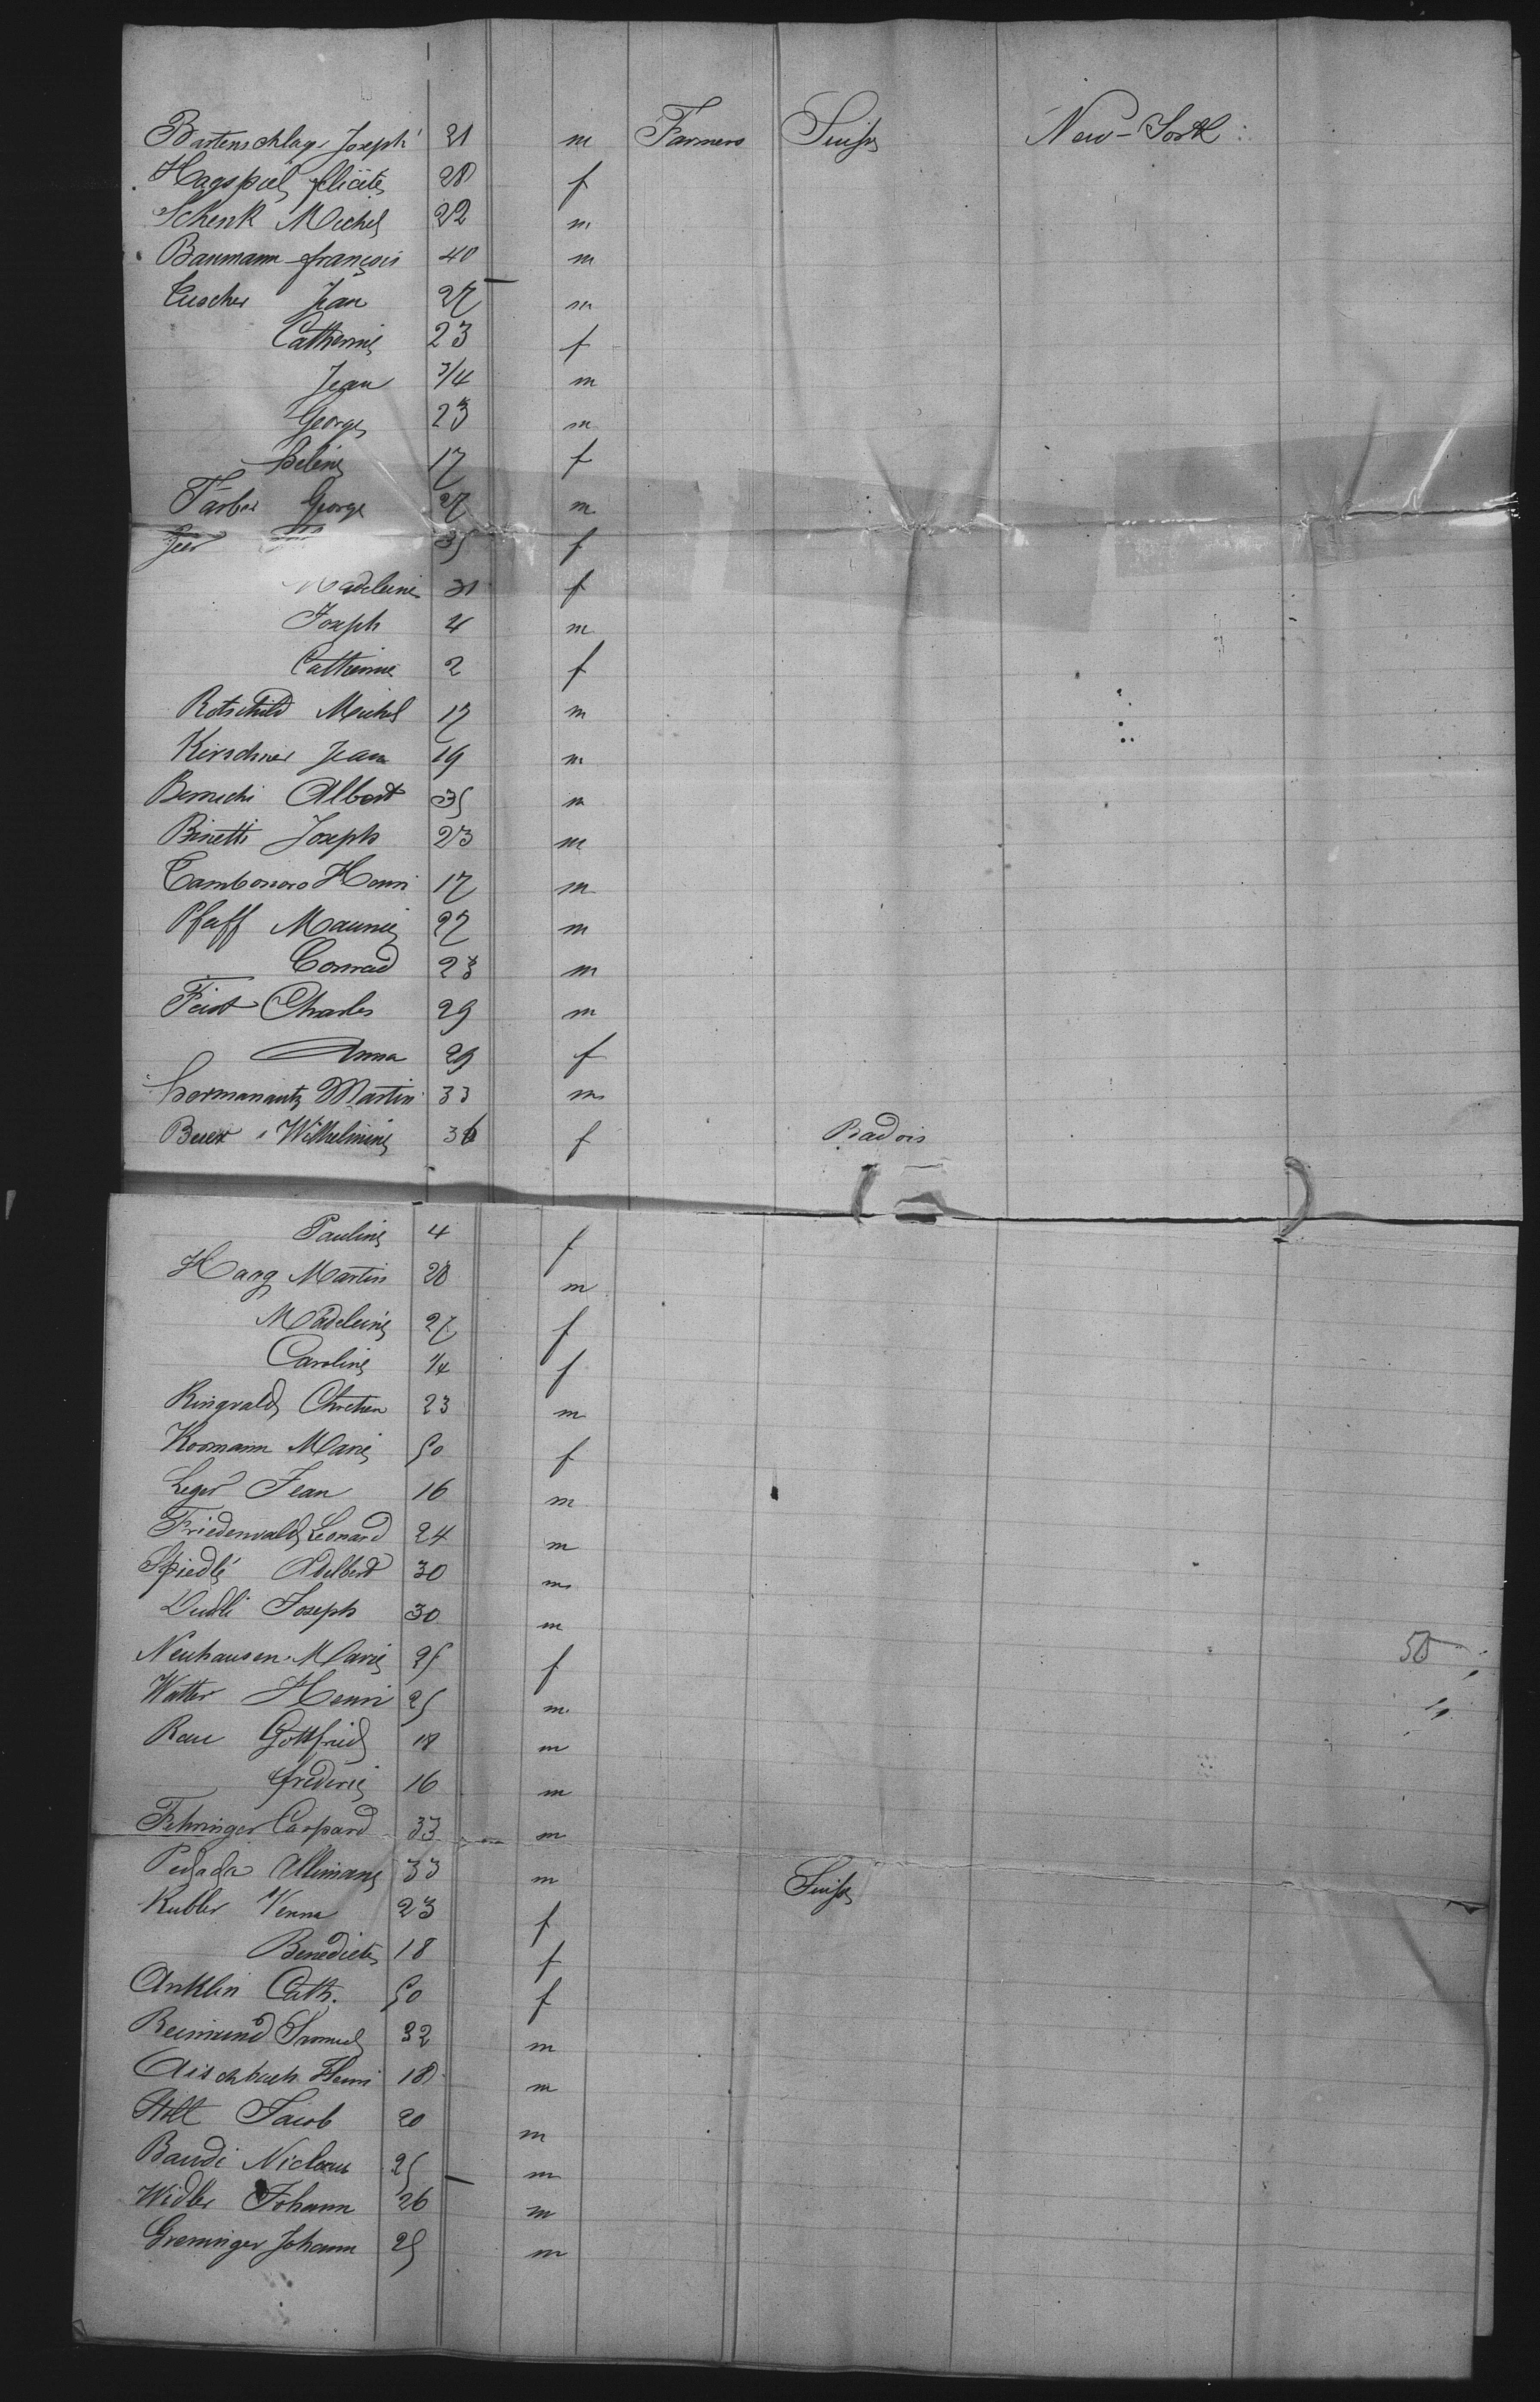 Bartenschlager Joseph 21 m Farmers Suisse New-York
Hagspiel félicité 28 f
Schenk Michel 22 m
Baumann françois 40 m
Tuscher Jean 27 m
Catherine 23 f
Jean 3/4 m
George 23 m
Helene 17 f
Farber George 27 m
35 f
Madeleine 31 f
Joseph 4 m
Catherine 2 f
Rotschild Michel 17 m
Kirschner Jean 19 m
Albert 35 m
Binetti Joseph 23 m
Tambornoro Henri 17 m
Pfaff Maurice 27 m
Conrad 23 m
Feist Charles 29 m
Anna 29 f
Hermanautz Martin 33 m
Wilhelmine 36 f Badois
Pauline 4 f
Haag Martin 28 m
Madeleine 27 f
Caroline 1/4 f
Ringvald Chretien 23 m
Kormann Marie 50 f
Leger Jean 16 m
Friedenvald Leonard 24 m
Spiedlé Adelbert 30 m
Dudli Joseph 30 m
Neuhausen Marie 25 f 50
Watter Henri 25 m
Rau Gottfried 18 m
frederic 16 m
Fehringer Caspard 33 m
33 m Suisse
Kubler Verena 23 f
Benedicte 18 f
Anklin Cath. 50 f
Reimund Samuel 32 m
Aischbach Henri 18 m
Stolt Jacob 20 m
Baudi Niclaus 25 m
Widler Johann 26 m
Greminger Johann 25 m